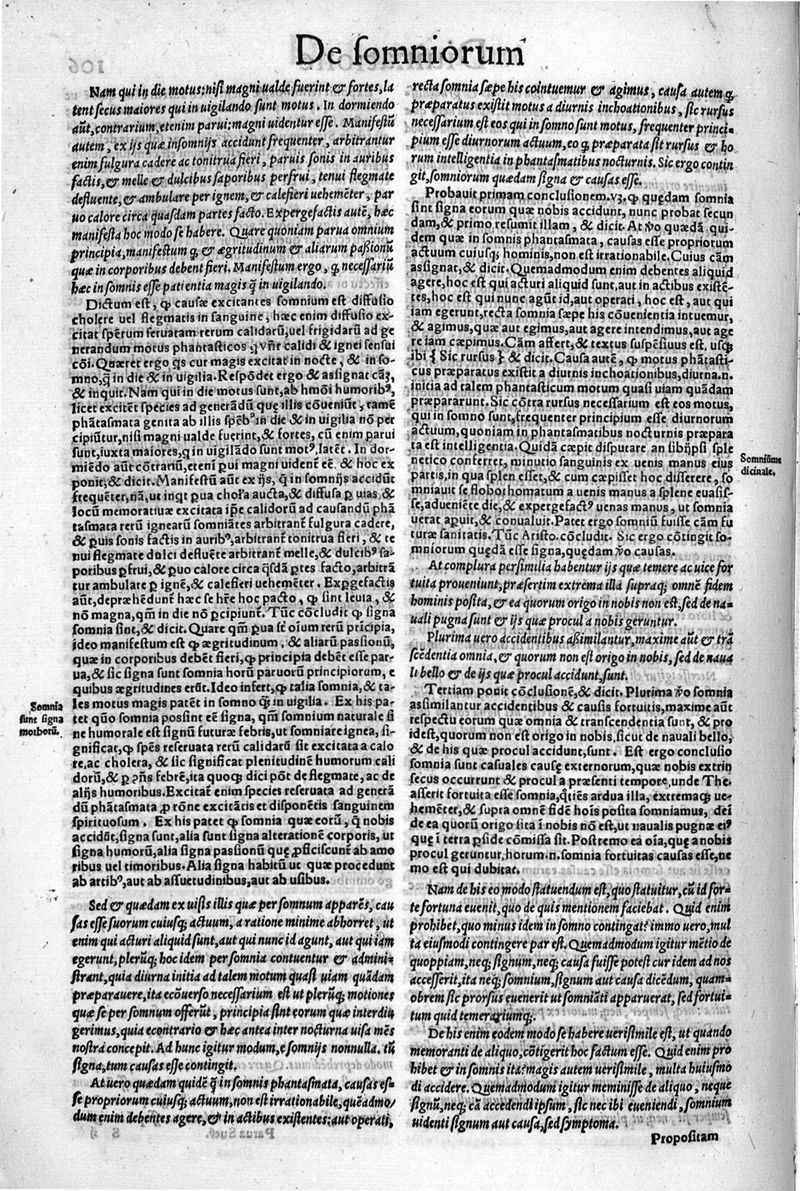 De somniorum
Nam qui in die motus: nisi magni ualde fuerint & fortes, la
tent secus maiores qui in uigilando sunt motus. In dormiendo
aũt, contrarium, etenim parui: magni uidentur esse. Manifestũ
autem, ex ijs quæ insomnijs accidunt frequenter, arbitrantur
enim fulgura cadere ac tonitrua fieri, paruis sonis in auribus
factis, & melle & dulcibus saporibus perfrui, tenui flegmate
defluente, & ambulare per ignem, & calefieri uehemẽter, par
uo calore circa quasdam partes facto. Expergefactis autẽ, hæc
manifesta hoc modo se habere. Quare quoniam parua omnium
principia, manifestum q, & ægritudinum & aliarum passionũ
quæ in corporibus debent fieri. Manifestum ergo, q, necessariũ
hæc in somnis esse patientia magis q̃ in uigilando.
Dictum est, ꝙ causæ excitantes somnium est diffusio
cholere uel flegmatis in sanguine, hæc enim diffusio ex
citat spẽrum seruatam rerum calidarũ, uel frigidarũ ad ge
nerandum motus phantasticos q̃ vñr calidi & ignei sensui
cõi. Quæret ergo q̃s cur magis excitat in nocte, & in so-
mno, q̃ in die & in uigilia. Respõdet ergo & assignat cãz,
& inquit. Nam qui in die motus sunt, ab hmõi humoribꝰ,
licet excitẽt species ad generãdũ quę illis cõueniũt, tamẽ
phãtasmata genita ab illis spẽbꝰ in die & in uigilia nõ per
cipiũtur, nisi magni ualde fuerint, & fortes, cũ enim parui
sunt, iuxta maiores, q̃ in uigilãdo sunt motꝰ, latẽt. In dor-
miẽdo aũt cõtrariũ, eteni pui magni uidenẽ eẽ. & hoc ex
ponit, & dicit. Manifestũ aũt ex ijs, q̃ in somnijs accidũt
frequẽter, nã, ut inqt pua choľa aucta, & diffusa p uias, &
locũ memoratiuæ excitata ipẽ calidorũ ad causandũ phã
tasmata rerũ ignearũ somniãtes arbitrant̃ fulgura cadere,
& puis sonis factis in auribꝰ, arbitrãt tonitrua fieri, & te
nui flegmate dulci defluẽte arbitrant̃ melle, & dulcibꝰ sa-
poribus pfrui, & puo calore circa q̃sdã ptes facto, arbitrã
tur ambulare p ignẽ, & calefieri uehemẽter. Expgefactis
aũt, depræhẽdunt hæc se hẽre hoc pacto, ꝙ sint leuia, &
nõ magna, qm̃ in die nõ pcipiunt̃. Tũc cõcludit ꝙ signa
somnia sint, & dicit. Quare qm̃ pua st̃ oĩum rerũ pricipia,
ideo manifestum est ꝙ ægritudinum, & aliarũ passionũ,
quæ in corporibus debẽt fieri, ꝙ principia debẽt esse par-
ua, & sic signa sunt somnia hõrũ paruorũ principiorum, e
quibus ægritudines erũt. Ideo infert, ꝙ talia somnia, & ta-
les motus magis patẽt in somno q̃ in uigilia. Ex his pa-
tet quõ somnia possint eẽ signa, qm̃ somnium naturale si
ne humorale est signũ futuræ febris, ut somniare ignea, si-
gnificat, ꝙ spẽs reseruata rerũ calidarũ sit excitata a calo
re, ac cholera, & sic significat plenitudinẽ humorum cali
dorũ, & p ɔñs febrẽ, ita quoq; dici põt de flegmate, ac de
alijs humoribus. Excitat̃ enim species reseruata ad generã
dũ phãtasmata p rõne excitãtis et disponẽtis sanguinem
spirituosum. Ex his patet ꝙ somnia quæ eorũ, q̃ nobis
accidũt, signa sunt, alia sunt signa alterationẽ corporis, ut
signa humorũ, alia signa passionũ quę pficiscunt̃ ab amo
ribus uel timoribus. Alia signa habitũ ut quæ procedunt
ab artibꝰ, aut ab assuetudinibus, aut ab usibus.
Sed & quædam ex uisis illis quæ per somnum apparẽt, cau
sas esse suorum cuiusq; actuum, a ratione minime abhorret, ut
enim qui acturi aliquid sunt, aut qui nunc id agunt, aut qui iam
egerunt, plerũq; hoc idem per somnia contuentur & admini-
strant, quia diurna initia ad talem motum quasi uiam quãdam
præparauere, ita ecõuerso necessarium est ut plerũq; motiones
quæ se per somnum offerũt, principia sint eorum quæ interdiu
gerimus, quia econtrario & hæc antea inter nocturna uisa mẽs
nostra concepit. Ad hunc igitur modum, e somnijs nonnulla. tũ
signa, tum causas esse contingit.
At uero quædam quidẽ q̃ in somnis phantasmata, causas es-
se propriorum cuiusq; actuum, non est irrationabile, quẽadmo/
dum enim debentes agere, & in actibus existentes: aut operati,
Somnia
sunt signa
morborũ.
recta somnia sæpe his cointuemur & agimus, causa autem q,
præparatus existit motus a diurnis inchoationibus, sic rursus
necessarium est eos qui in somno sunt motus, frequenter princi-
pium esse diurnorum actuum, eo q, præparata sit rursus & ho
rum intelligentia in phantasmatibus nocturnis. Sic ergo contin
git, somniorum quædam signa & causas esse.
Probauit primam conclusionem. vz. ꝙ quędam somnia
sint signa eorum quæ nobis accidunt, nunc probat secun
dam, & primo resumit illam, & dicit. At v̊o quædã qui-
dem quæ in somnis phantasmata, causas esse propriorum
actuum cuiusq; hominis, non est irrationabile. Cuius cãm
assignat, & dicit. Quemadmodum enim debentes aliquid
agere, hoc est qui acturi aliquid sunt, aut in actibus existẽ-
tes, hoc est qui nunc agũt id, aut operati, hoc est, aut qui
iam egerunt, recta somnia sæpe his cõuenientia intuemur,
& agimus, quæ aut egimus, aut agere intendimus, aut age
re iam cæpimus. Cãm affert, & textus suspẽsiuus est, usq;
ibi { Sic rursus } & dicit. Causa autẽ, ꝙ motus phãtasti-
cus præparatus existit a diurnis inchoationibus, diurna. n.
initia ad talem phantasticum motum quasi uiam quãdam
præpararunt. Sic cõtra rursus necessarium est eos motus,
qui in somno sunt, frequenter principium esse diurnorum
actuum, quoniam in phantasmatibus nocturnis præpara
ta est intelligentia. Quidã cæpit disputare an sibijpsi sple
netico conferret, minutio sanguinis ex uenis manus eius
partis, in qua splen esset, & cum cæpisset hoc differere, so
mniauit se flobothomatum a uenis manus a splene euasis-
se, adueniẽte die, & expergefactꝰ uenas manus, ut somnia
uerat apuit, & conualuit. Patet ergo somniũ fuisse cãm fu
turæ sanitatis. Tũc Aristo. cõcludit. Sic ergo cõtingit so-
mniorum quędã esse signa, quędam v̊o causas.
At complura persimilia habentur ijs quæ temere ac uice for
tuita proueniunt, præsertim extrema illa supraq; omnẽ fidem
hominis posita, & ea quorum origo in nobis non est, sed de na-
uali pugna sunt & ijs quæ procul a nobis geruntur.
Plurima uero accidentibus aßimilantur, maxime aũt & trã
scẽdentia omnia, & quorum non est origo in nobis, sed de naua
li bello & de ijs quæ procul accidunt, sunt.
Tertiam ponit cõclusionẽ, & dicit. Plurima v̊o somnia
assimilantur accidentibus & causis fortuitis, maxime aũt
respectu eorum quæ omnia & transcendentia sunt, & pro
idest, quorum non est origo in nobis, sicut de nauali bello,
& de his quæ procul accidunt, sunt. Est ergo conclusio
somnia sunt casuales causę externorum, quæ nobis extrin
secus occurrunt & procul a præsenti tempore, unde The.
asserit fortuita esse somnia, q̃tiẽs ardua illa, extremaq; ue-
hemẽter, & supra omnẽ fidẽ hoĩs posita somniamus, deĩ
de ea quorũ origo sita ĩ nobis nõ est, ut naualis pugnæ eiꝰ
quę ĩ terra pside cõmissa sit. Postremo ea oĩa, quę a nobis
procul geruntur, horum. n. somnia fortuitas causas esse, ne
mo est qui dubitat.
Nam de his eo modo statuendum est, quo statuitur, cũ id for-
te fortuna euenit, quo de quis mentionem faciebat. Quid enim
prohibet, quo minus idem in somno contingat? immo uero, mul
ta eiusmodi contingere par est. Quemadmodum igitur mẽtio de
quoppiam, neq; signum, neq; causa fuisse potest cur idem ad nos
accesserit, ita neq; somnium, signum aut causa dicẽdum, quam-
obrem sic prorsus euenerit ut somniãti apparuerat, sed fortui-
tum quid temerariumq;.
De his enim eodem modo se habere uerisimile est, ut quando
memoranti de aliquo, cõtigerit hoc factum esse. Quid enim pro
hibet & in somnis ita? magis autem uerisimile, multa huiusmo
di accidere. Quemadmodum igitur meminisse de aliquo, neque
signũ, neq; cã accedendi ipsum, sic nec ibi eueniendi, somnium
uidenti signum aut causa, sed symptoma.
Somniũme
dicinale.
Propositam